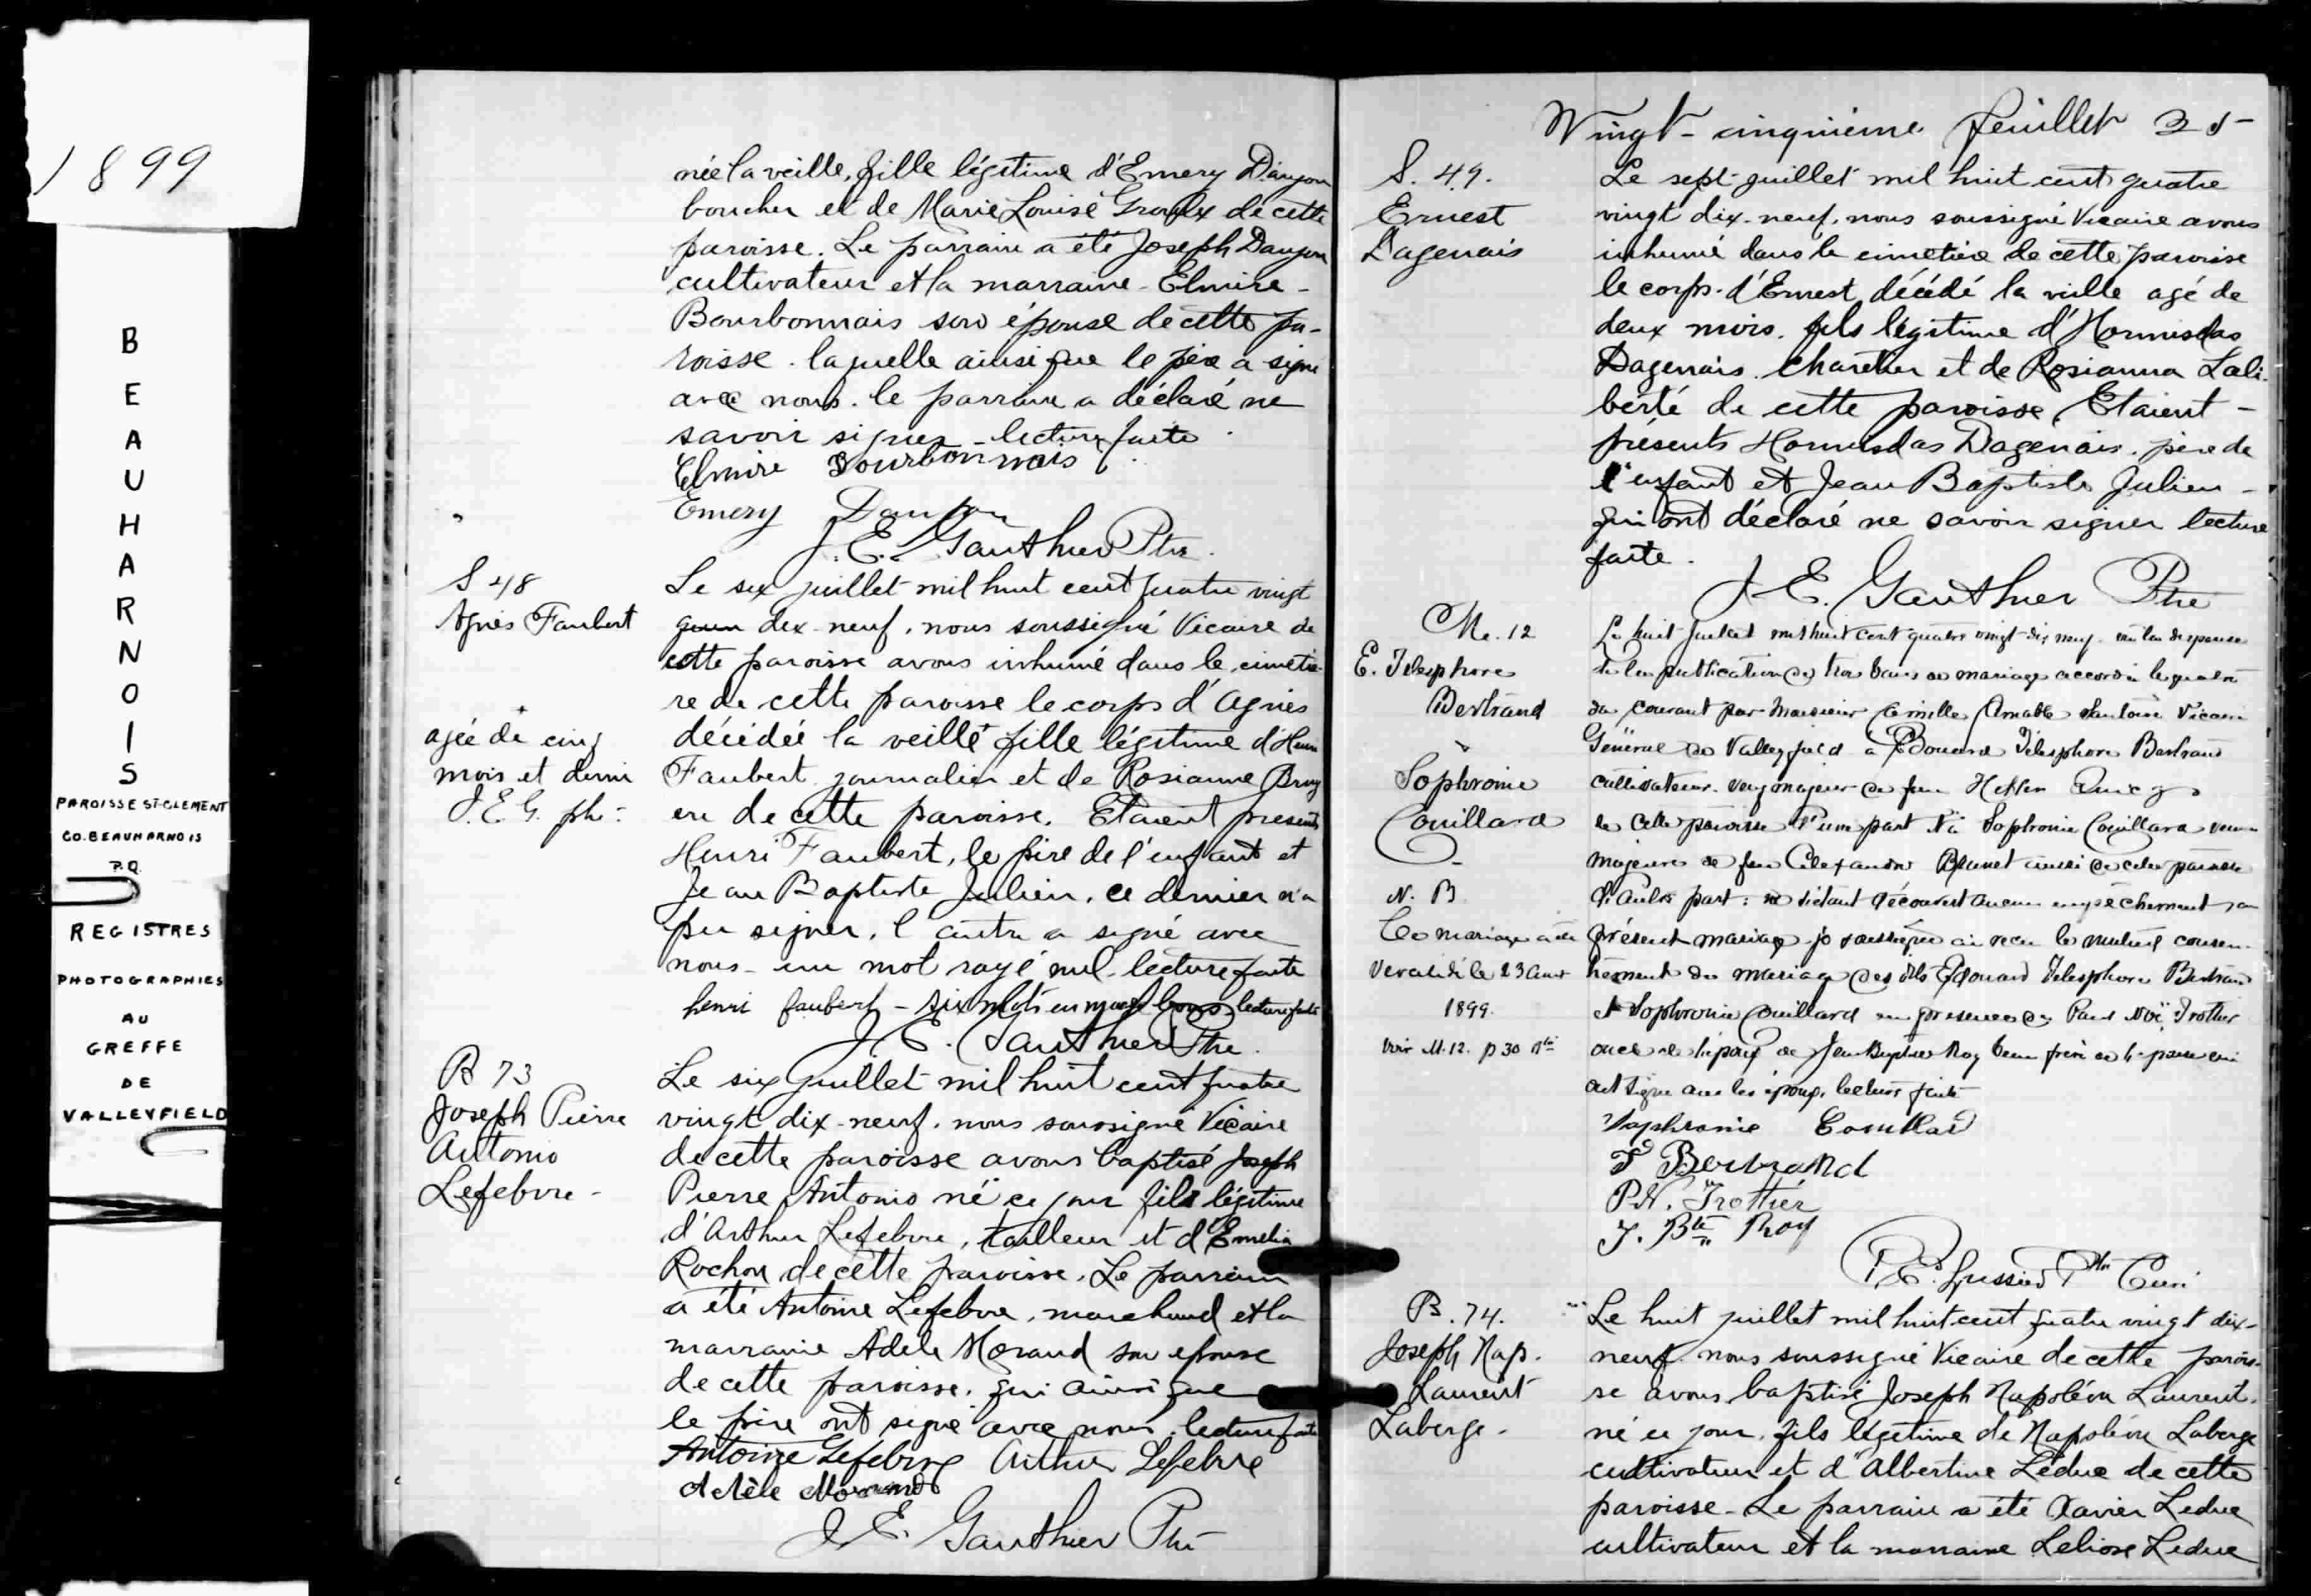 1899
BEAUHARNOIS
PAROISSE ST-CLEMENT
CO. BEAUHARNOIS
P.Q.
REGISTRES
PHOTOGRAPHIES
AU
GREFFE
DE
VALLEYFIELD
née la veille, fille légitime d'Emery Daujou
boucher et de Marie Louise Groulx de cette
paroisse. Le parrain a été Joseph Daujou
cultivateur et la marraine - Elmire -
Bourbonnais son épouse de cette pa-
roisse. laquelle ainsi que le père a signé
avec nous. le parrain a déclaré ne
savoir signer - lecture faite.
Elmire Bourbonnais
Emery
J. E. Gauthier Ptre.
S 48
Agnès Faubert
agée de cinq
mois et demi
J. E. G. ptr.
Le six juillet mil huit cent quatre vingt
dix-neuf, nous soussigné Vicaire de
cette paroisse avons inhumé dans le cimetiè-
re de cette paroisse le corps d'Agnès
décédée la veille fille légitime d'Henri
Faubert journalier et de Rosianne Bruy
ere de cette paroisse. Etaient présents
Henri Faubert, le père de l'enfant et
Jean Baptiste Julien, ce dernier n'a
pu signer, l'autre a signé avec
nous - un mot rayé nul - lecture faite
henri faubert - six mots en marge bons lecture faite
J. E. Gauthier Ptre.
B 73
Joseph Pierre
Antonio
Lefebvre -
Le six juillet mil huit cent quatre
vingt dix-neuf, nous soussigné Vicaire
de cette paroisse avons baptisé Joseph
Pierre Antonio né ce jour fils légitime
d'Arthur Lefebvre, tailleur et d'Emélia
Rochon de cette paroisse. Le parrain
a été Antoine Lefebvre, marchand et la
marraine Adèle Morand son épouse
de cette paroisse, qui ainsi que
le père ont signé avec nous. lecture faite
Antoine Lefebvre Arthur Lefebvre
Adèle Morand
J. E. Gauthier Ptre
Vingt-cinquième feuillet 25
S. 49.
Ernest
Dagenais
Le sept juillet mil huit cent quatre
vingt dix-neuf, nous soussigné Vicaire avons
inhumé dans le cimetière de cette paroisse
le corps d'Ernest décédé la veille agé de
deux mois, fils légitime d'Hormisdas
Dagenais charetier et de Rosianna Lali-
berté de cette paroisse, Etaient -
présents Hormisdas Dagenais, père de
l'enfant et Jean Baptiste Julien -
qui ont déclaré ne savoir signer lecture
faite.
J. E. Gauthier Ptre
M. 12
E. Télesphore
Bertrand
&
Sophronie
Couillard
N. B
Ce mariage a été
revalidé le 23 Aout
1899.
Voir M. 12. p 30
Le huit Juillet mil huit cent quatre vingt-dix neuf vu la dispense
de la publication des trois bans de mariage accordée le quatre
du courant par Monsieur Camille Amable Santoire Vicaire
Général de Valleyfield à Edouard Télesphore Bertrand
cultivateur veuf majeur de feu
de cette paroisse d'une part & à Sophronie Couillard veuve
majeure de feu Alexandre Brunet aussi de cette paroisse
d'autre part: ne s'étant découvert aucun empêchement au
présent mariage je soussigné ai reçu le mutuel consen-
tement de mariage des dits Edouard Télesphore Bertrand
et Sophronie Couillard en présence de Paul Noé Trottier
oncle de l'époux de Jean Baptiste Roy beau frère de l'épouse qui
ont signé avec les époux, lecture faite
Sophronie Couillard
T Bertrand
P. N. Trottier
J. Bte Roy
P. E. Lussier Ptre Curé
B. 74.
Joseph Nap.
Laurent
Laberge.
Le huit juillet mil huit cent quatre vingt dix-
neuf nous soussigné Vicaire de cette parois-
se avons baptisé Joseph Napoléon Laurent.
né ce jour, fils légitime de Napoléon Laberge
cultivateur et d'Albertine Leduc de cette
paroisse - Le parrain a été Xavier Leduc
cultivateur et la marraine Leduc